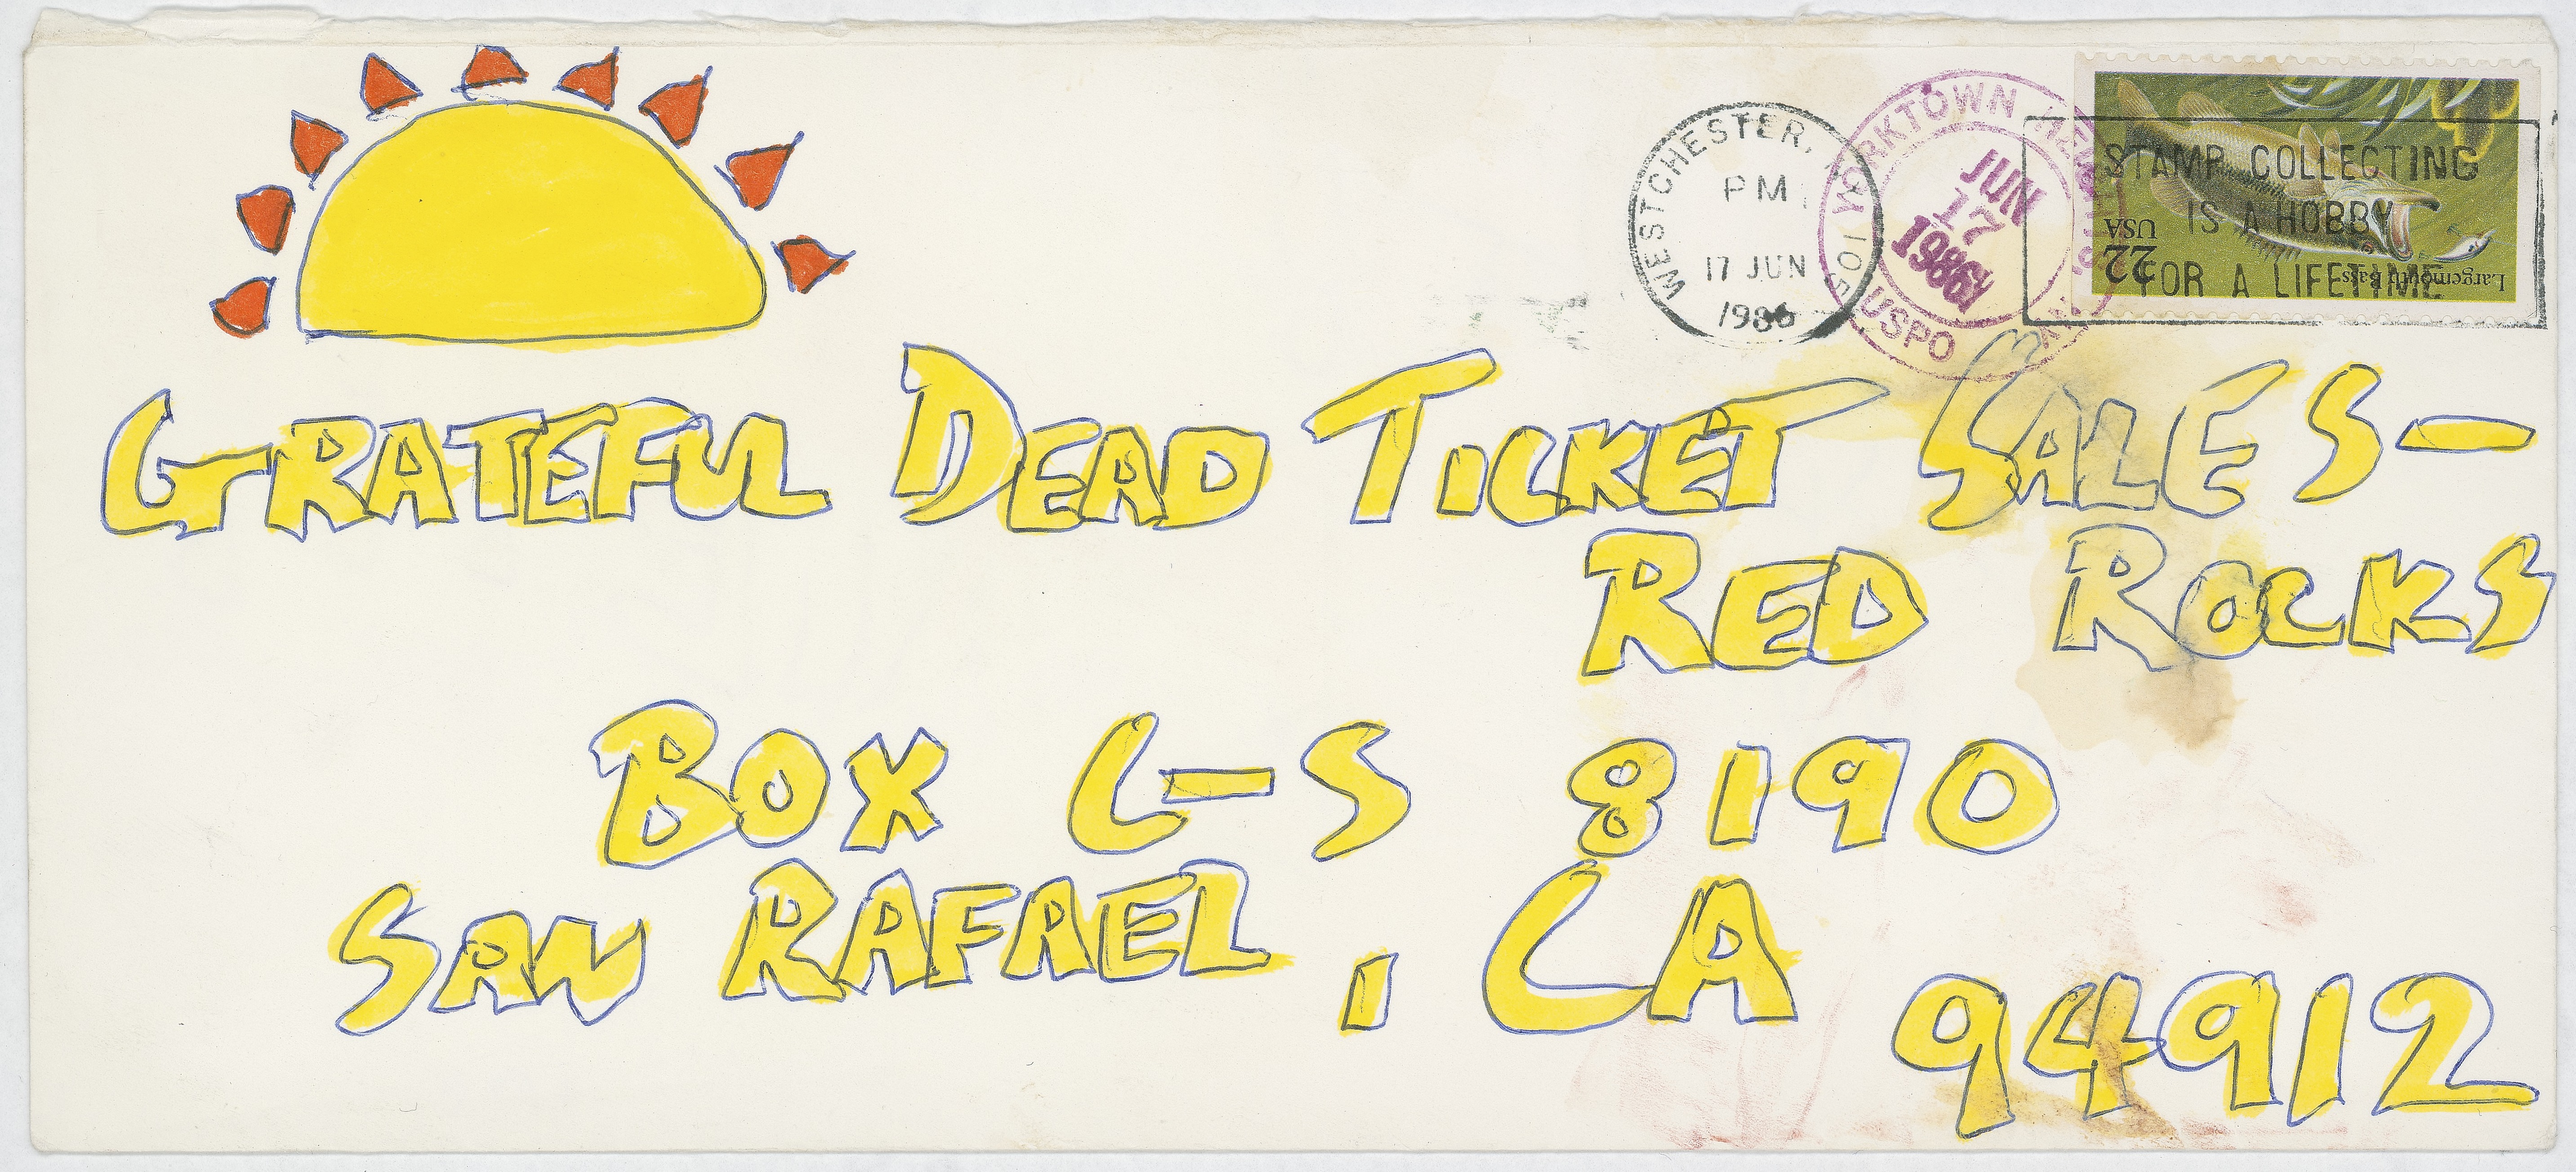 WESTCHESTER,
PM
17 JUN
1986
YORKTOWN
JUN
17
1986
USPO
STAMP COLLECTING
IS A HOBBY
FOR A LIFETIME
Largemouth Bass
USA
22
GRATEFUL DEAD TICKET SALES-
RED ROCKS
BOX C-S 8190
SAN RAFAEL, CA
94912